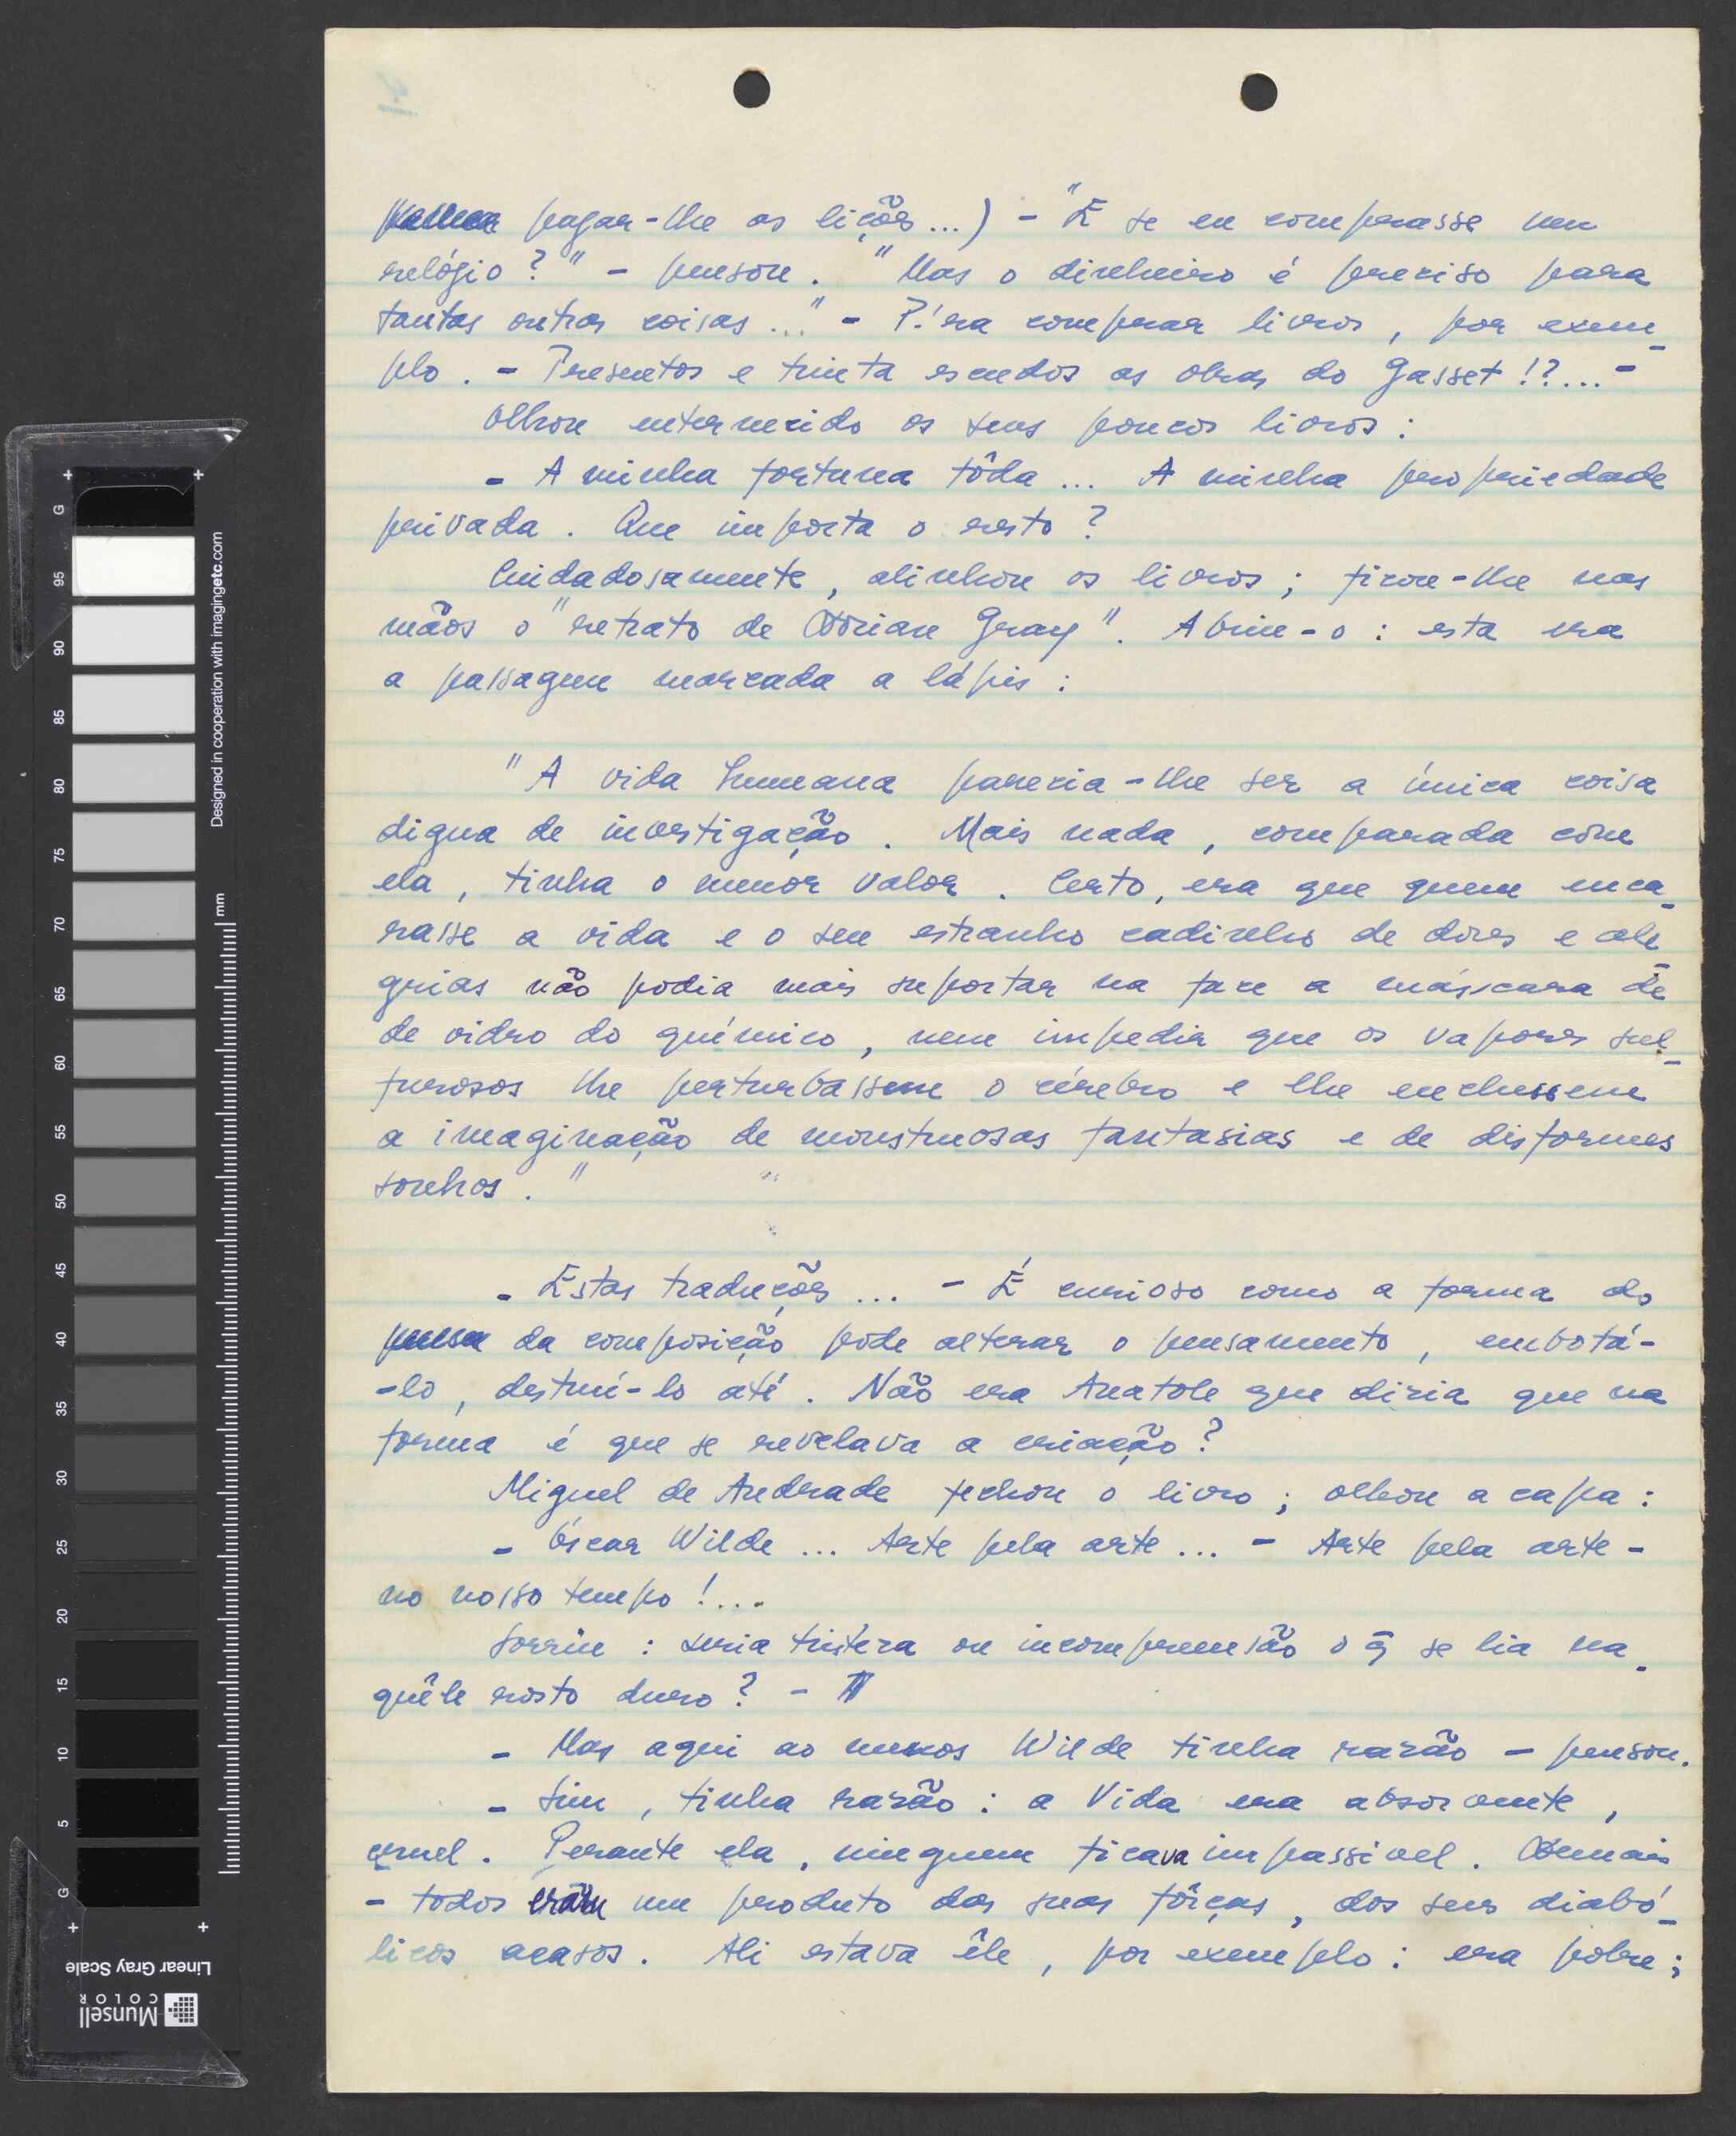 pagar-lhe as lições...) - "E se eu comprasse um
relógio?" - pensou. "Mas o dinheiro é preciso para
tantas outras coisas..." - P'ra comprar livros, por exem_
plo. - Tresentos e trinta escudos as obras do Gasset!?...-
Olhou enternecido os seus poucos livros:
- A minha fortuna tôda... A minha propriedade
privada. Que importa o resto?
Cuidadosamente, alinhou os livros; ficou-lhe nas
mãos o "retrato de Dorian Gray". Abriu-o: esta era
a passagem marcada a lápis:
"A vida humana parecia-lhe ser a única coisa
digna de investigação. Mais nada, comparada com
ela, tinha o menor valor. Certo, era que quem enca_
rasse a vida e o seu estranho cadinho de dores e ale_
grias não podia mais suportar na face a máscara de
de vidro do químico, nem impedia que os vapores sul_
furosos lhe perturbassem o cérebro e lhe enchessem
a imaginação de monstruosas fantasias e de disformes
sonhos."
- Estas traduções... - É curioso como a forma do
da composição pode alterar o pensamento, embotá-
-lo, destruí-lo até. Não era Anatole que dizia que na
forma é que se revelava a criação?
Miguel de Andrade fechou o livro; olhou a capa:
- Óscar Wilde... Arte pela arte... - Arte pela arte -
no nosso tempo!...
Sorriu: seria tristeza ou incompreensão o q̃ se lia na_
quêle rosto duro? -
- Mas aqui ao menos Wilde tinha razão - pensou.
- Sim, tinha razão: a Vida era absorvente,
cruel. Perante ela, ninguem ficava impassivel. Demais
- todos eram um produto das suas fôrças, dos seus diabó_
licos acasos. Ali estava êle, por exemplo: era pobre;
Designed in cooperation with imagingetc.com
mm
+ +
G
95
90
85
80
75
70
65
60
55
50
45
40
35
30
25
20
15
10
5
G
+ +
Linear Gray Scale
Munsell
COLOR